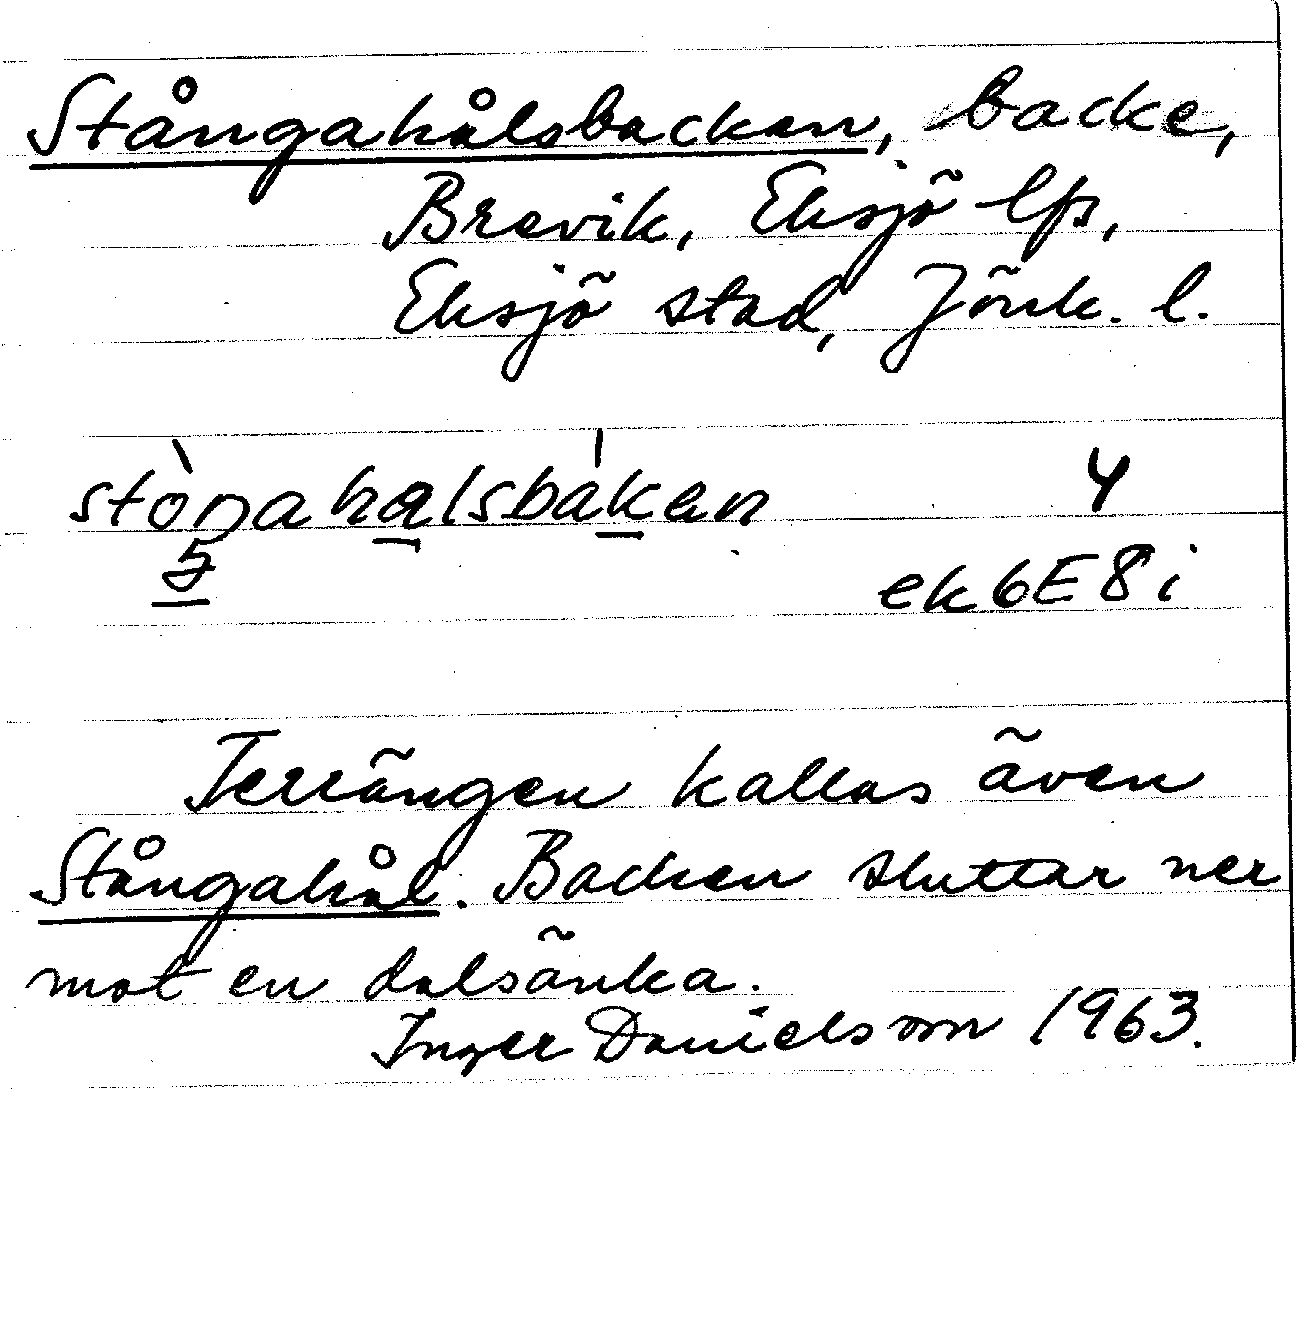 Stångahålsbacken, backe,
Brevik, Eksjö lfs,
Eksjö stad, Jönk. l.
stòŋahalsbákan 4
ek6E8i
Terrängen kallas även
Stångahål. Backen sluttar ner
mot en dalsänka.
Inger Danielsson 1963.